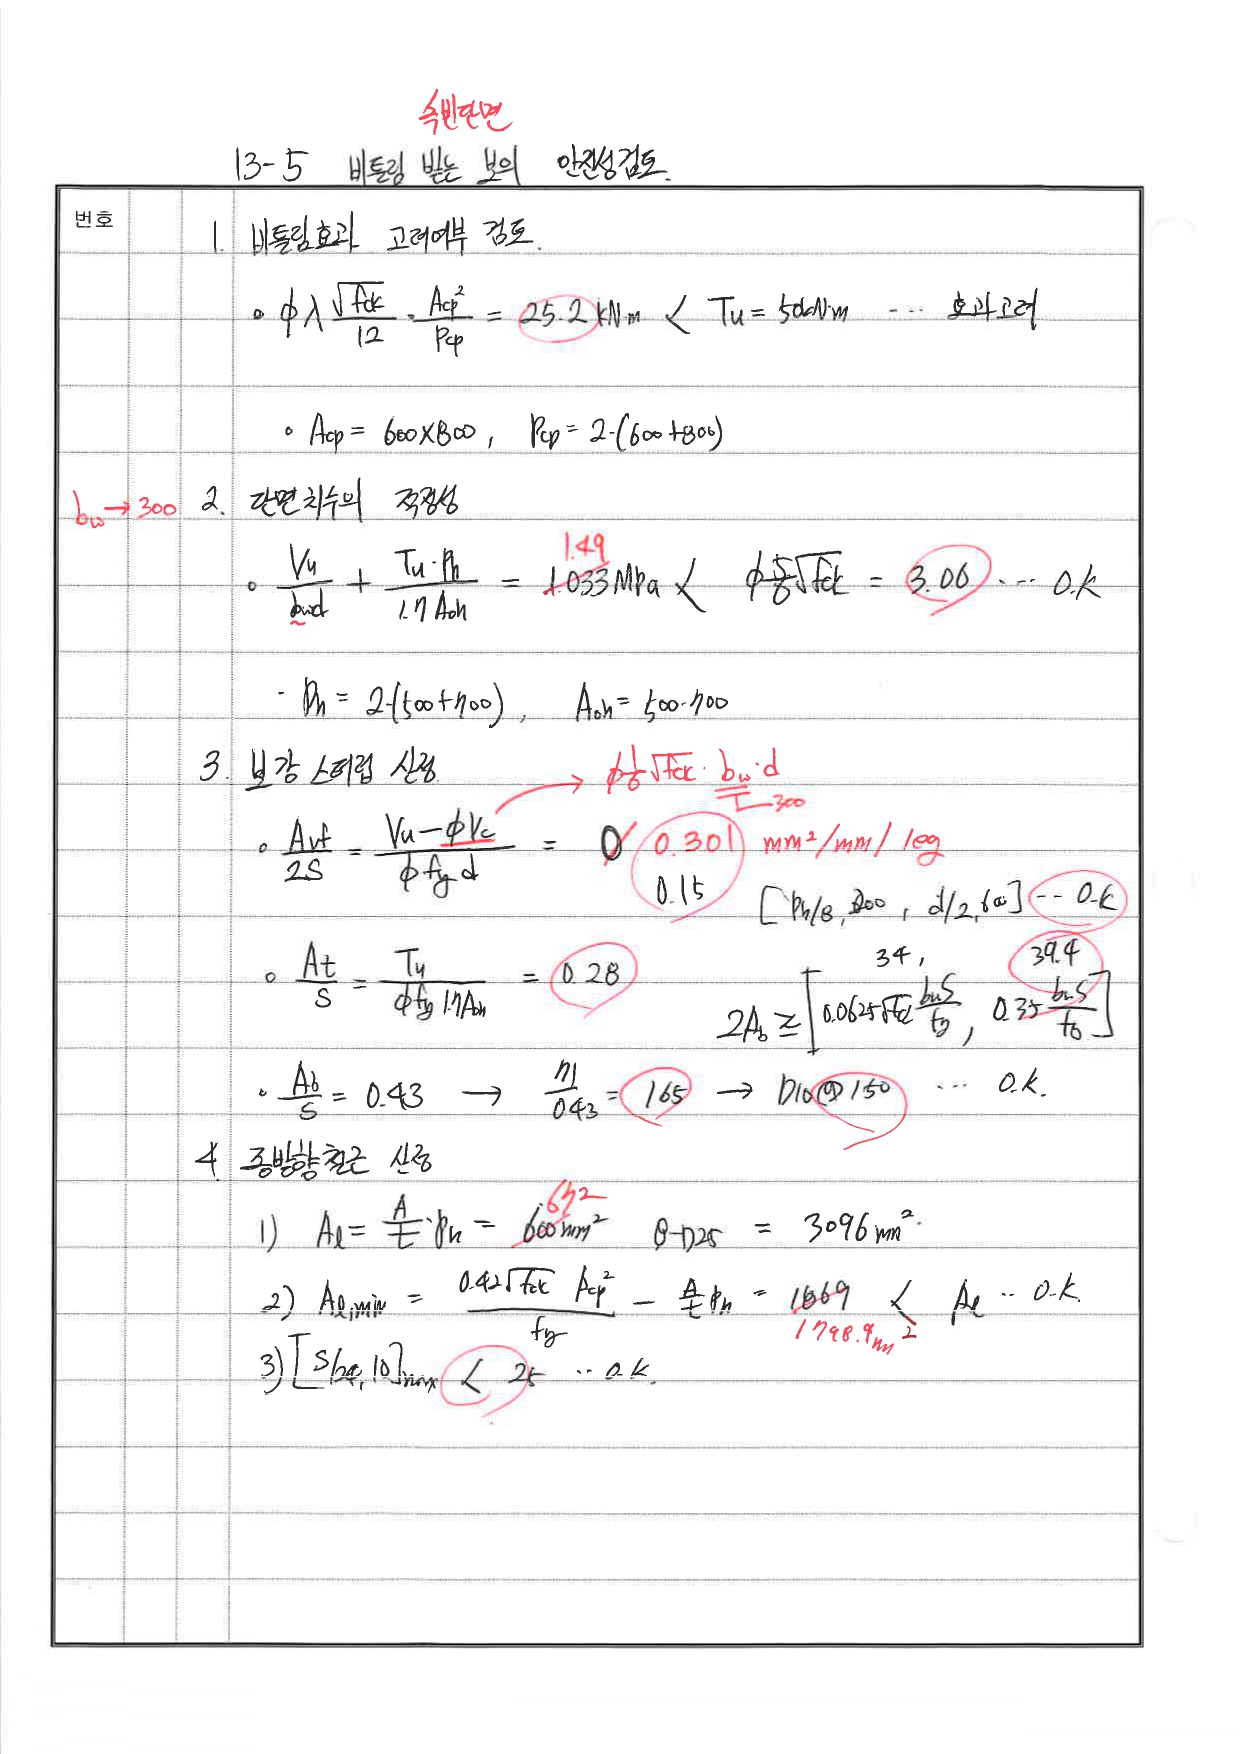 속빈단면
13-5 비틀림 받는 보의 안전성검토.
번호
1. 비틀림효과 고려여부 검토.
∘ φλ √fck/12 · Acp²/Pcp = 25.2 kN·m < Tu = 50kN·m ··· 효과고려
∘ Acp = 600×800, Pcp = 2·(600+800)
bw → 300
2. 단면치수의 적정성
1.49
∘ Vu/bwd + Tu·Ph/1.7Aoh = 1.033MPa < φ 5/6 √fck = 3.06 ··· O.K
· Ph = 2·(500+700), Aoh = 500·700
3. 보강 스터럽 산정
φ 1/6 √fck · bw·d
300
∘ Avf/2S = Vu-φVc/φfyd = 0 0.301 mm²/mm/leg
0.15
[Ph/8, 300, d/2, 600] ·· O.K
34, 39.4
∘ At/S = Tu/φfy 1.7Aoh = 0.28
2Ab ≥ [0.0625√fck bwS/fy, 0.35 bwS/fy]
∘ Ab/S = 0.43 → 71/0.43 = 165 → D10@150 ··· O.K.
4. 종방향철근 산정
672
1) Al = A/t·Ph = 600mm² 8-D25 = 3096mm².
2) Al,min = 0.42√fck Acp²/fy - A/t Ph = 1869 < Al ·· O.K.
1798.9mm²
3) [S/24, 10]max < 25 ·· O.K.